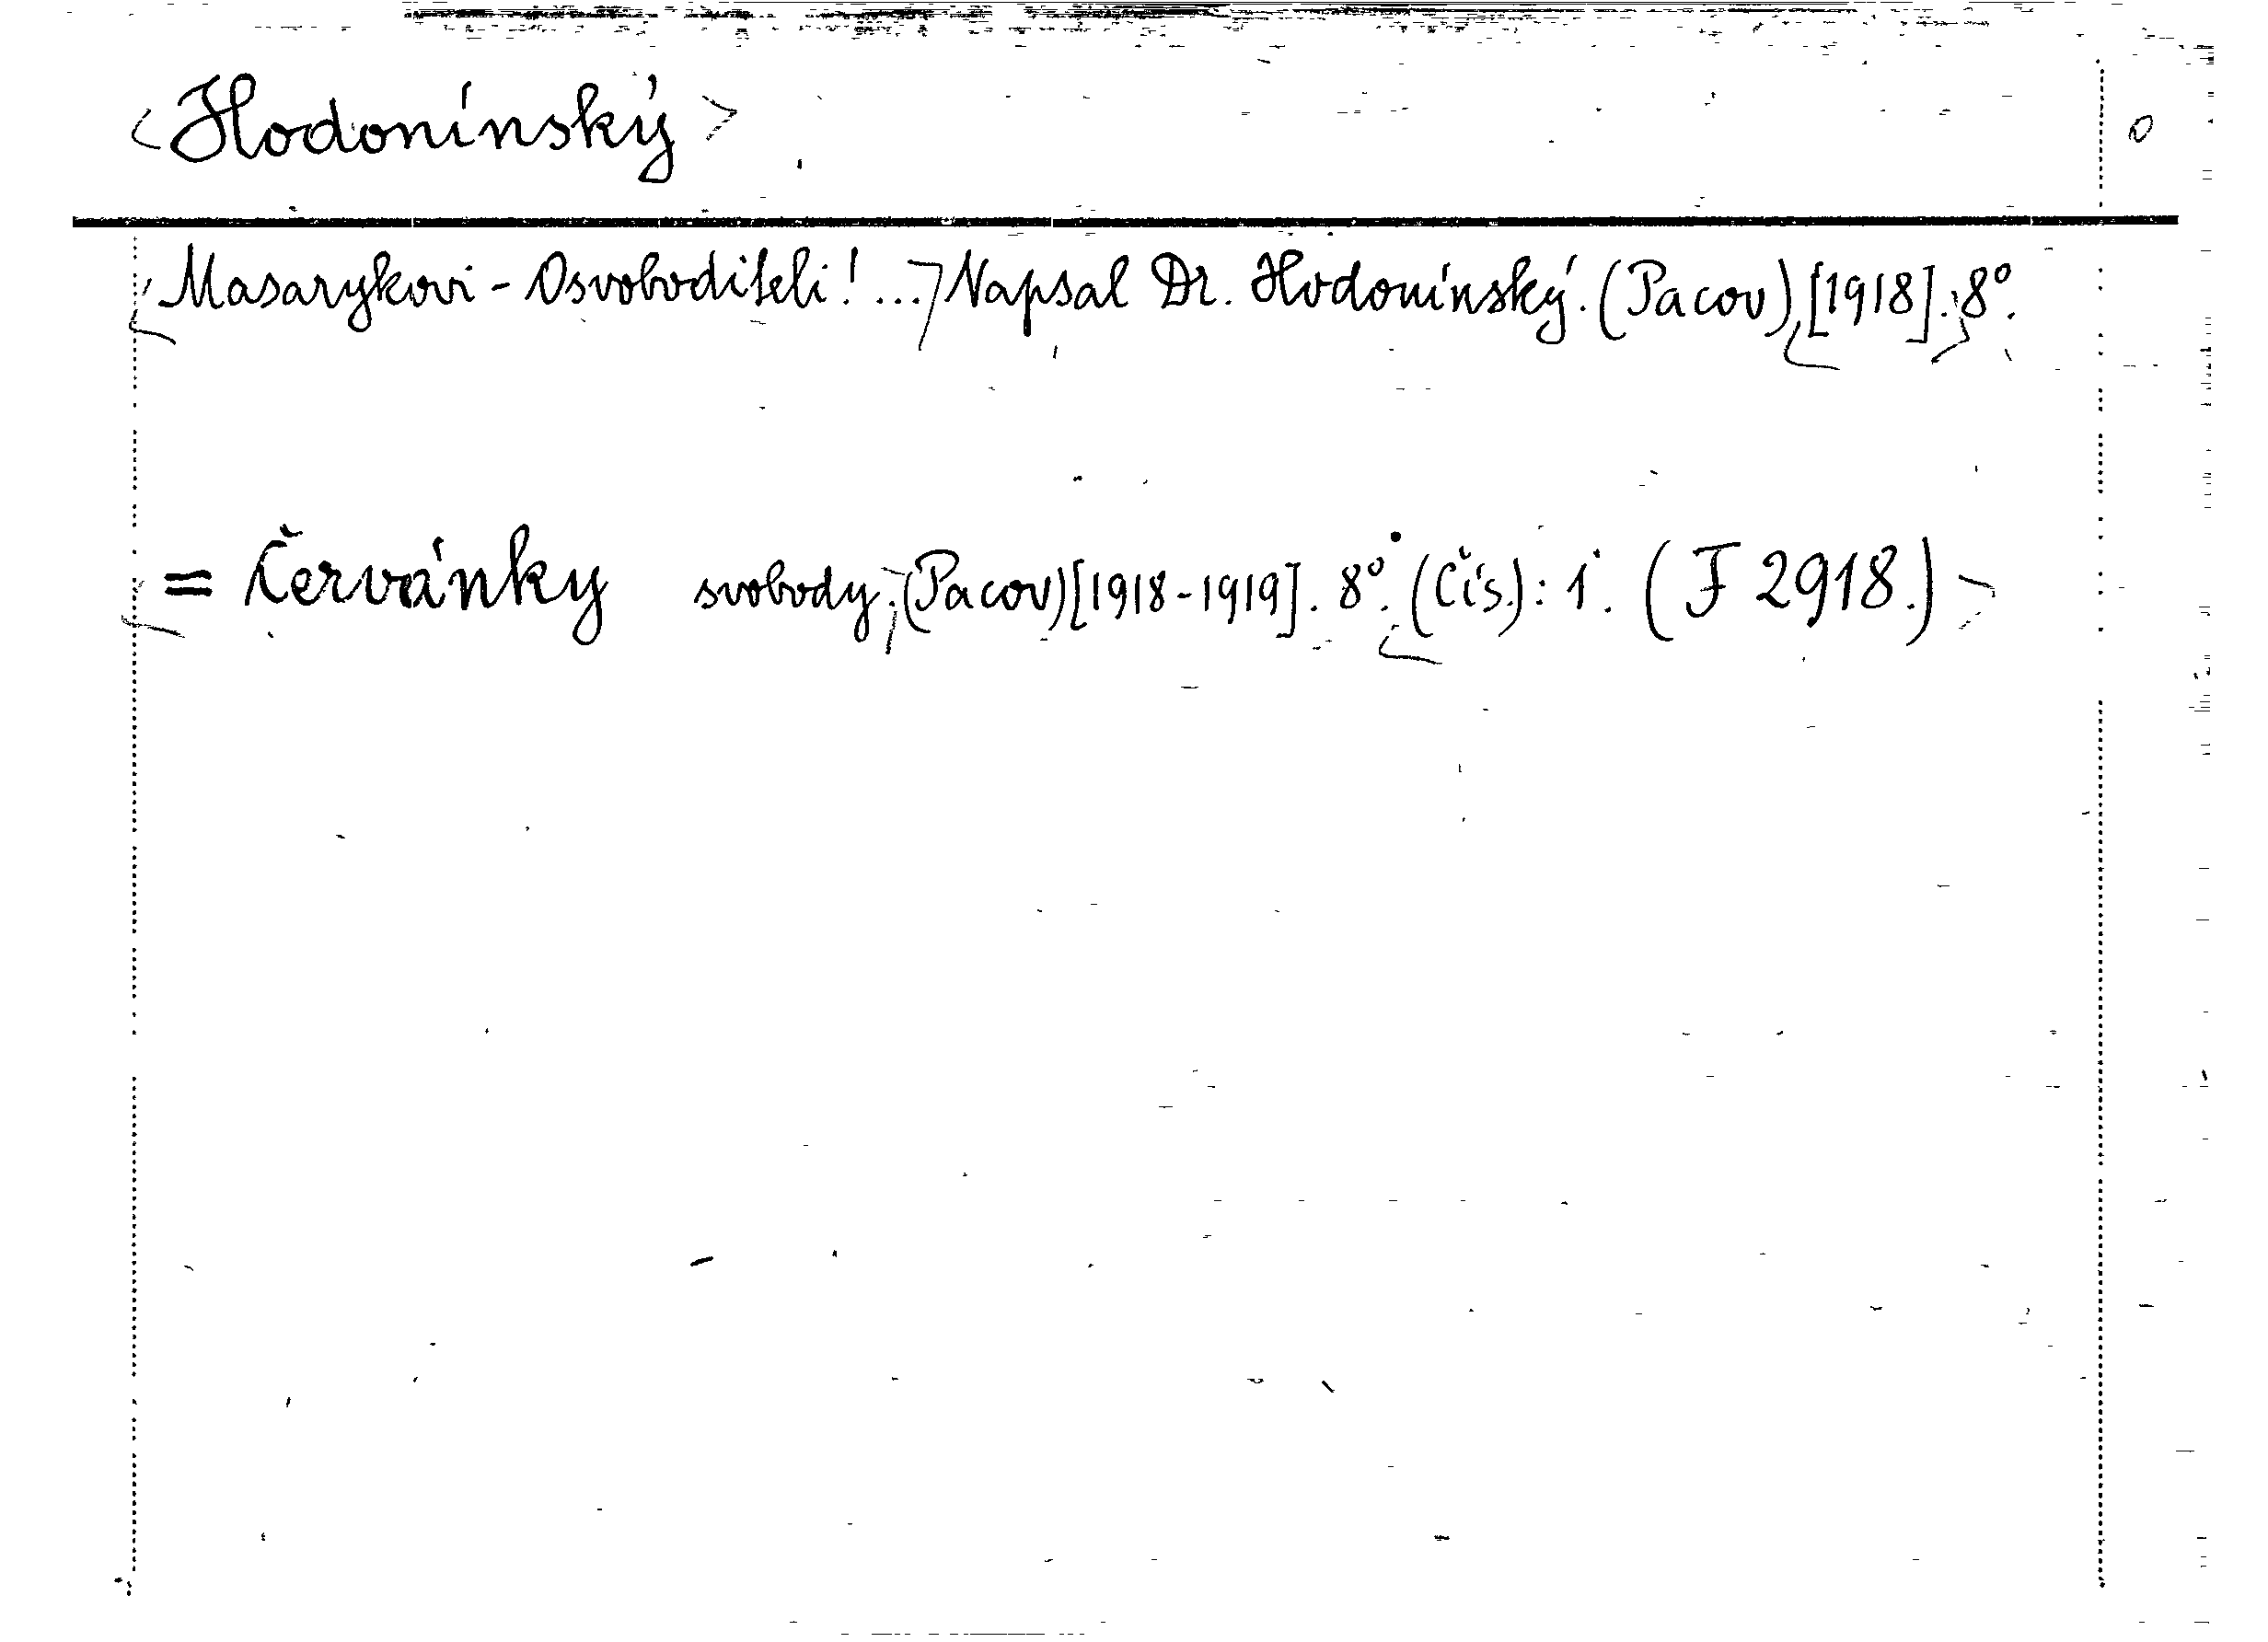 <Hodonínský> 0
Masarykovi - Osvoboditeli! ... Napsal Dr. Hodonínský. (Pacov) [1918]. 8°.
= Červánky svobody. (Pacov) [1918-1919]. 8°. (Čís.): 1. (F 2918.)